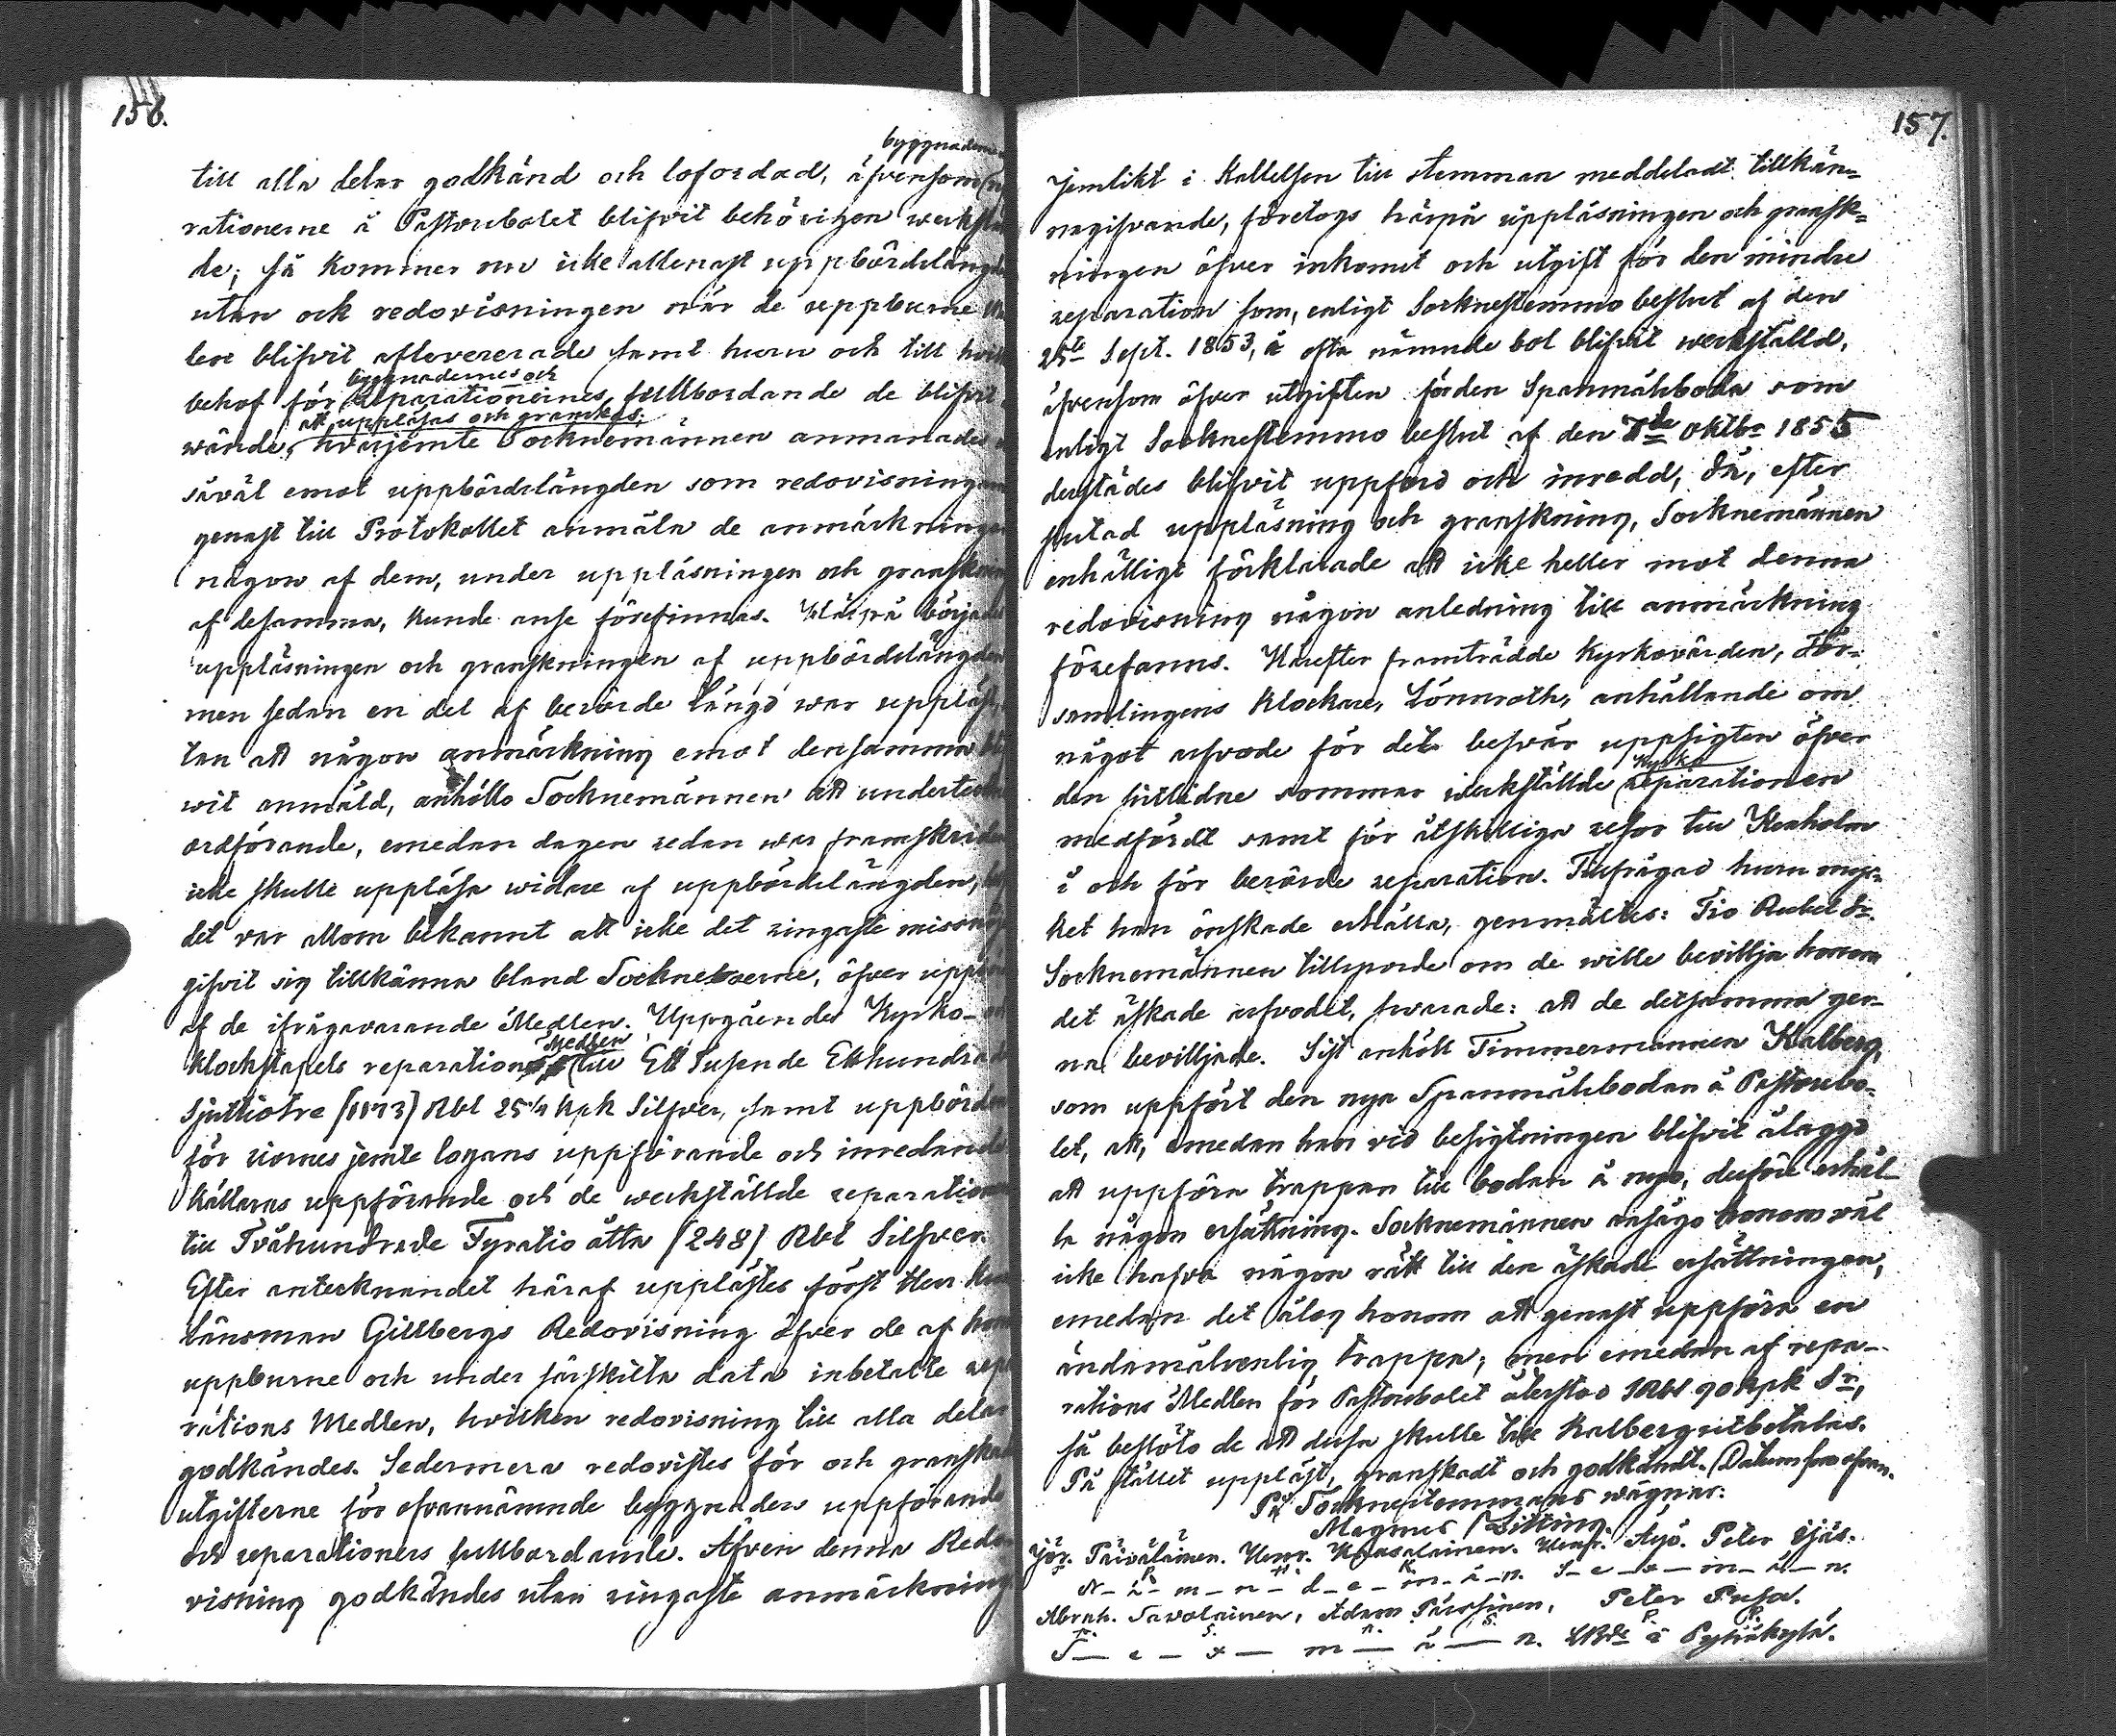 156.
byggnaderna
till alla delar godkänd och lofordad, äfvensom
rationerne å Pastorsbolet blifvit behörigen werkstäl
de; så kommer nu icke allenast uppbördslängde
utan ock redovisningen när de uppburne
len blifvit aflevererade samt huru och till
byggnadernes och
behof för reparationernes fullbordande de blifvit
att uppläsas och granskas;
wände, hvarjemte Socknemännen anmanades
såväl emot uppbördslängden som redovisningen
genast till Protokollet anmäla de anmärkningar
någon af dem, under uppläsningen och granskni
af desamma, kunde anse förefinnas. Härpå började
uppläsningen och granskningen af uppbördslängden
men sedan en del af berörde längd war uppläst,
tan att någon anmärkning emot densamma bli
wit anmäld, anhöllo Socknemännen att underteckn
ordförande, emedan dagen redan war framskriden
icke skulle uppläsa widare af uppbördslängden,
det var allom bekannt att icke det ringaste missnöj
gifvit sig tillkänna bland Socknebоerne, öfver uppbör
af de ifrågavarande Medlen. Uppgåendes Kyrko- och
Medlen
klockstapels reparations till Ett Tusende Etthundrade
Sjuttiotre [1173] Rbl 25 1/4 kpk Silfver, samt uppbörden
för riornes jemte logans uppförande och inredande
källarns uppförande och de werkställde reparationer
till Tvåhundrade Fyratio åtta [248] Rbl Silfver.
Efter antecknandet häraf upplästes först Herr
länsman Gillbergs Redovisning öfver de af honom
uppburne och under särskilta data inbetalte repa
rations Medlen, hvilken redovisning till alla delar
godkändes. Sedermera redovistes för och granskad
utgifterne för ofvannämnde byggnaders uppförande
och reparationers fullbordande. Äfven denna Redo
visning godkändes utan ringaste anmärkning
157.
Jemlikt i Kallelsen till stemman meddeladt tillkän-
nagifvande, företogs härpå uppläsningen och gransk-
ningen öfver inkomst och utgift för den mindre
reparation som, enligt Socknestemmo beslut af den
25te Sept. 1853, å ofta nämnde bol blifvit werkställd,
äfvensom öfver utgiften för den Spanmålsboda som
enligt Socknestemmo beslut af den 7de Oktbr 1855
derstädes blifvit uppförd och inredd, då, efter
slutad uppläsning och granskning, Socknemännen
enhälligt förklarade att icke heller mot denna
redovisning någon anledning till anmärkning
förefanns. Härefter framträdde Kyrkovärden, För-
samlingens Klockare, Lönnroth, anhållande om
något arfvode för det besvär uppsigten öfver
Kyrko
den förlidne sommar werkställde reparationen
medfördt samt för åtskilliga resor till Kexholm
i och för berörde reparation. Tillfrågad huru myc-
ket han önskade erhålla, genmältes: Tio Rubel Sr.
Socknemännen tillsporde om de wille bevillja honom
det äskade arfvodet, swarade: att de detsamma ger-
na bevilljade. Sist anhöll Timmermannen Kalberg,
som uppfört den nya Spanmålsbodan å Pastorsbo-
let, att, emedan han vid besigtningen blifvit ålaggd
att uppföra trappan till bodan å nyo, derföre erhål-
la någon ersättning. Socknemännen ansågo honom väl
icke hafva någon rätt till den äskade ersättningen,
emedan det ålag honom att genast uppföra en
ändamålsenlig trappa; men emedan af repa-
rations Medlen för Pastorsbolet återstod 1 Rbl 90 kpk Sr,
så beslöto de att dessa skulle till Kalberg utbetalas.
På stället uppläst, granskadt och godkändt. Datum som ofvan.
På Socknestemmans wägnar:
Magnus Zitting.
Jör. Päiväläinen. Henr. Henr. Äijö. Peter Ijäs.
N-ä-m-n-d-e-m-ä-n. S-e-x-m-ä-n.
Abrah. Savolainen, Adam Pärssinen, Peter Pusa.
S-e-x-m-ä-n. LBde i Pyhäkylä.